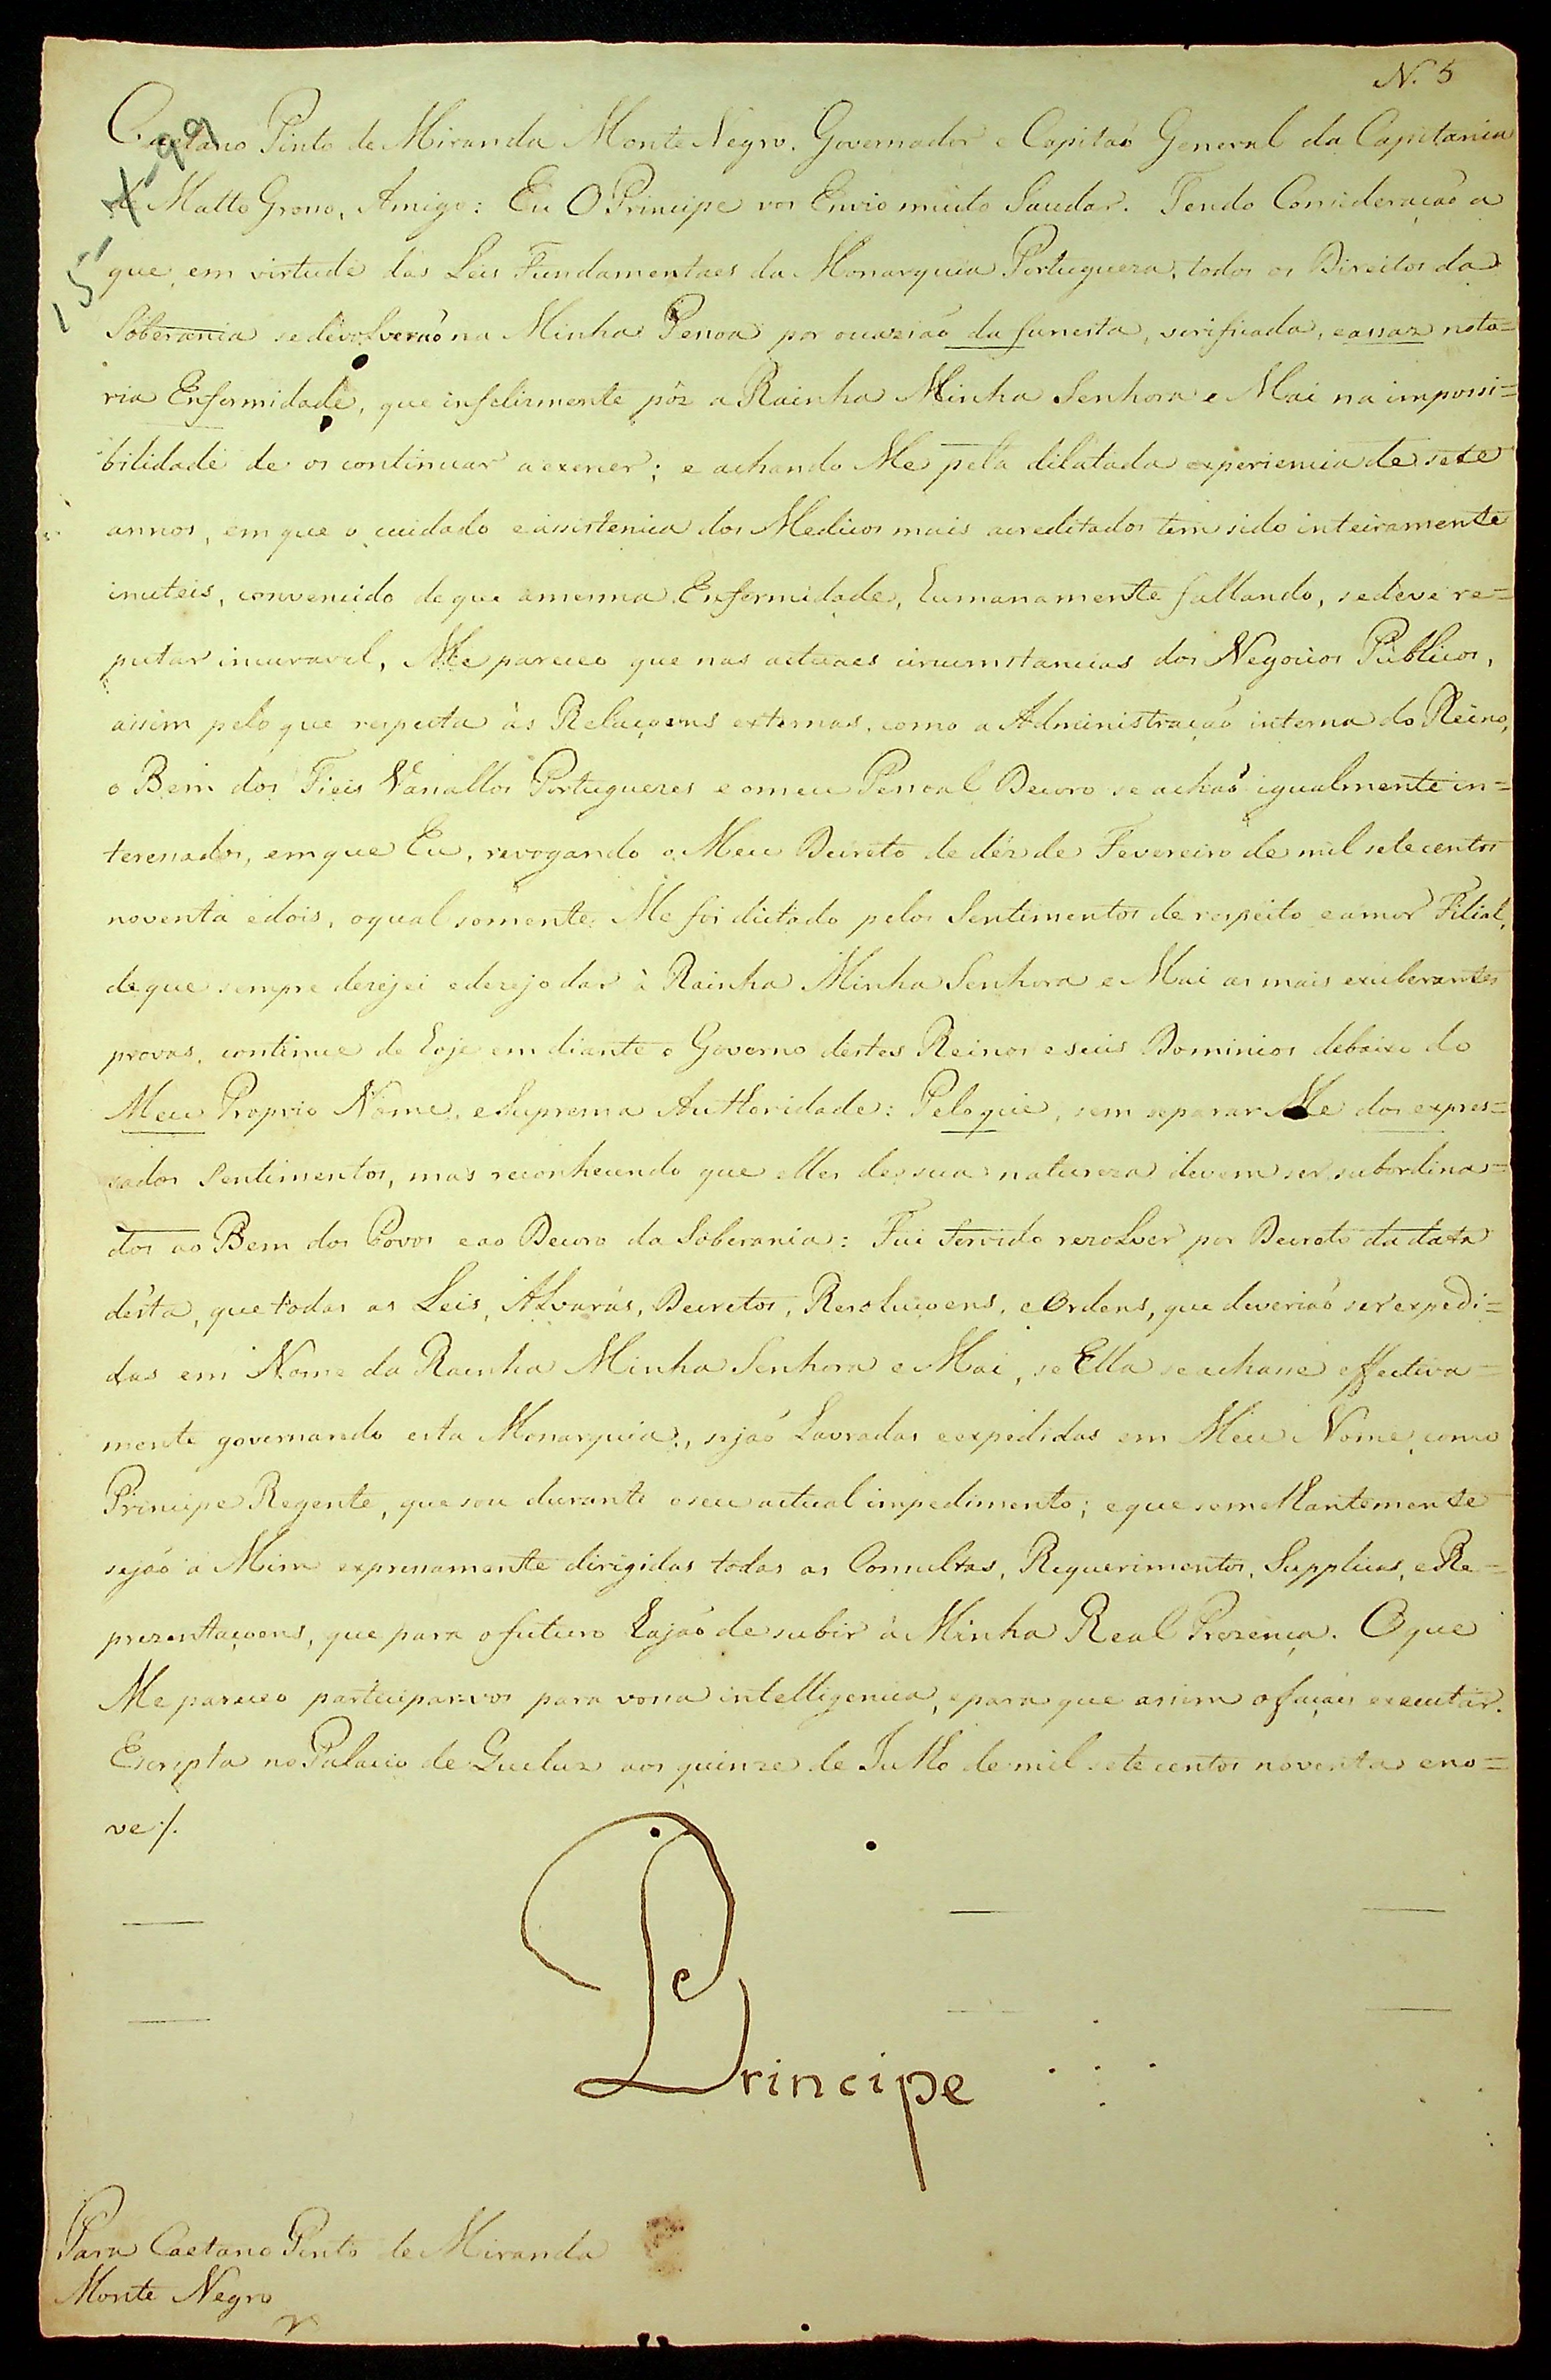 N. 5
Caetano Pinto de Miranda Monte Negro. Governador e Capitaõ General da Capitania
de Matto Grosso, Amigo: Eu O Principe vos Envio muito Saudar. Tendo Consideraçaõ a
que, em virtude das Leis Fundamentaes da Monarquia Portugueza, todos os Direitos da
Soberania se devolveraõ na Minha Pessoa por occaziaõ da funesta, verificada, e assaz noto=
ria Enfermidade, que infelizmente pôz a Rainha Minha Senhora e Mai na impossi=
bilidade de os continuar a exercer; e achando Me pela dilatada experiencia de sete
annos, em que o cuidado e assistencia dos Medicos mais acreditados tem sido inteiramente
inuteis, convencido de que a mesma Enfermidade, humanamente fallando, se deve re=
putar incuravel, Me pareceo que nas actuaes circumstancias dos Negocios Publicos,
assim pelo que respecta ás Relaçoens externas, como a Administraçaõ interna do Reino,
o Bem dos Fieis Vassallos Portuguezes e o meu Pessoal Decoro se achaõ igualmente in=
teressados, em que Eu, revogando o Meu Decreto de déz de Fevereiro de mil sete centos
noventa e dois, o qual somente Me foi dictado pelos Sentimentos de respeito e amor Filial,
de que sempre dezejei e dezejo dar à Rainha Minha Senhora e Mai as mais exuberantes
provas, continue de hoje em diante o Governo destes Reinos e seus Dominios debaixo do
Meu Proprio Nome, e Suprema Authoridade: Pelo que, sem separar Me dos expres=
sados Sentimentos, mas reconhecendo que elles de sua natureza devem ser subordina=
dos ao Bem dos Povos e ao Decoro da Soberania: Fui Servido rezolver por Decreto da data
désta, que todas as Leis, Alvarás, Decretos, Rezoluçoens, e Ordens, que deveriaõ ser expedi=
das em Nome da Rainha Minha Senhora e Mai, se Ella se achasse effectiva=
mente governando esta Monarquia, sejaõ Lavradas e expedidas em Meu Nome, como
Principe Regente, que sou durante o seu actual impedimento; e que semelhantemente
sejaõ a Mim expressamente dirigidas todas as Consultas, Requerimentos, Supplicas, e Re=
prezentaçoens, que para o futuro hajaõ de subir á Minha Real Prezença. O que
Me pareceo participar-vos para vossa intelligencia, e para que assim o façais executar.
Escripta no Palacio de Queluz aos quinze de Julho de mil sete centos noventa e no=
ve /.
Principe
Para Caetano Pinto de Miranda
Monte Negro